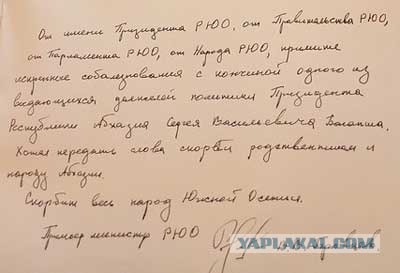 От имени Президента РЮО, от Правительства РЮО,
от Парламента РЮО, от Народа РЮО, примите
искренние соболезнования с кончиной одного из
выдающихся деятелей политики Президента
Республики Абхазия Сергея Васильевича Багапша.
Хотел передать слова скорби родственникам и
народу Абхазии.
Скорбит весь народ Южной Осетии.
Премьер министр РЮО
YAPLAKAL.COM